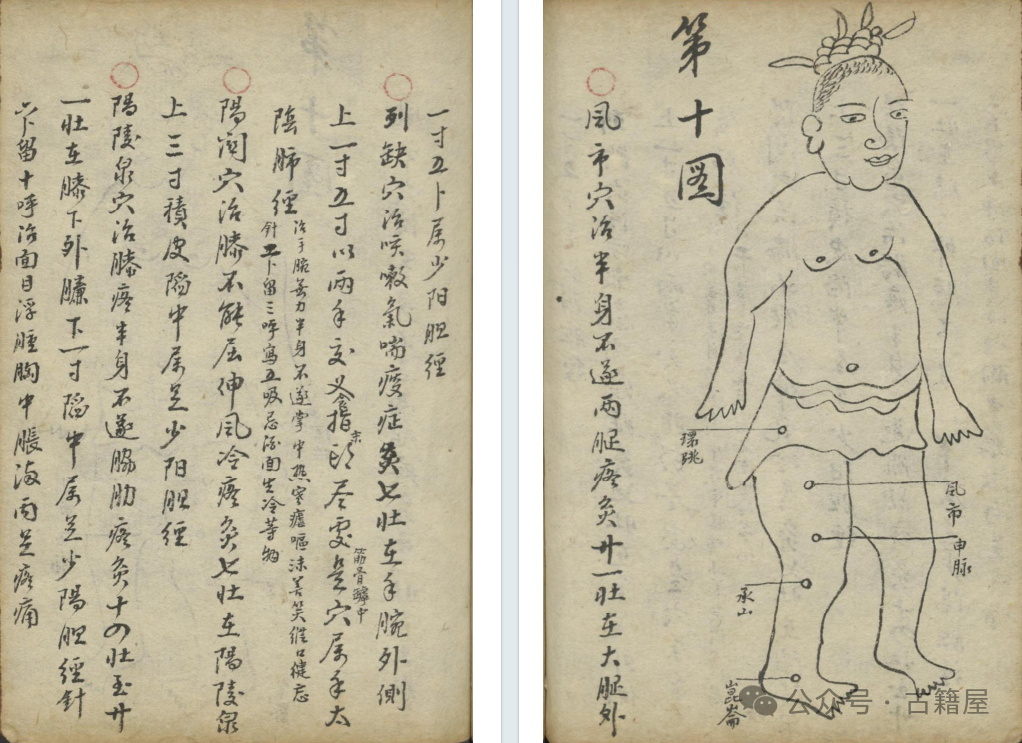 第十图
風市穴治半身不遂兩腿疼灸廿一壯在大腿外
環跳
風市
申脉
承山
崑崙
公众号·古籍屋
一寸五卜属少阳胆經
列缺穴治咳嗽氣喘痰症灸七壯在手腕外側
上一寸五寸以兩手交叉食指末頭尽處筋骨罅中是穴属手太
陰肺經
治手腕無力半身不遂掌中热寒瘧嘔沫善笑維口健忘
針二卜留三呼寫五吸忌酒面生冷等物
陽関穴治膝不能屈伸風冷疼灸七壯在陽陵泉
上三寸積皮陷中属足少阳胆經
陽陵泉穴治膝疼半身不遂脇肋疼灸十四壯至廿
一壯在膝下外臁下一寸陷中属足少陽胆經針
六卜留十呼治面目浮腫胸中脹滿両足疼痛